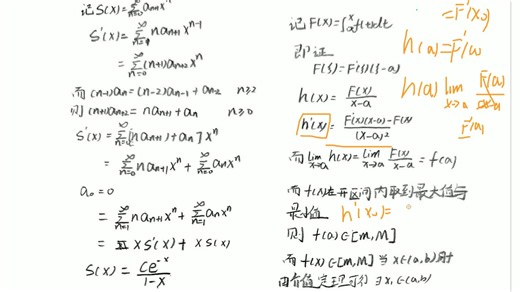 记 S(x)=∑_{n=0}^{∞} a_{n+1}x^n
S'(x)=∑_{n=1}^{∞} n a_{n+1} x^{n-1}
=∑_{n=0}^{∞} (n+1)a_{n+2}x^n
而 (n-1)a_n=(n-2)a_{n-1}+a_{n-2} n≥2
则 (n+1)a_{n+2}=na_{n+1}+a_n n≥0
S'(x)=∑_{n=0}^{∞}[na_{n+1}+a_n]x^n
=∑_{n=0}^{∞} na_{n+1}x^n+∑_{n=0}^{∞} a_n x^n
a_0=0
=∑_{n=1}^{∞} na_{n+1}x^n+∑_{n=1}^{∞} a_n x^n
= xS'(x)+xS(x)
S(x)=\frac{ce^{-x}}{1-x}
记 F(x)=∫_a^x f(t)dt
即证
F(ξ)=F'(ξ)(ξ-a)
h(x)=\frac{F(x)}{x-a}
h'(x)=\frac{F'(x)(x-a)-F(x)}{(x-a)^2}
而 \lim_{x→a} h(x)=\lim_{x→a}\frac{F(x)}{x-a}=f(a)
而 f(x)在开区间内取到最大值与
最小值 h'(x_0)=
则 f(a)∈[m,M]
而 f(x)∈[m,M] 当 x∈(a,b)时
由介值定理可得 ∃x_1∈(a,b)
=F'(x_0)
h(a)=F'(a)
h(a) \lim_{x→a} \frac{F(x)}{x-a}
F'(a)